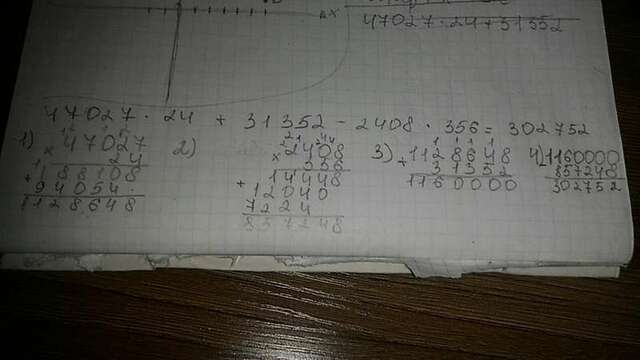 47027·24+31352
47027 · 24 + 31352 - 2408 · 356 = 302752
1) × 47027
24
+ 188108
94054
1128648
2) × 2408
356
+ 14448
12040
7224
857248
3) + 1128648
31352
1160000
4) - 1160000
857248
302752